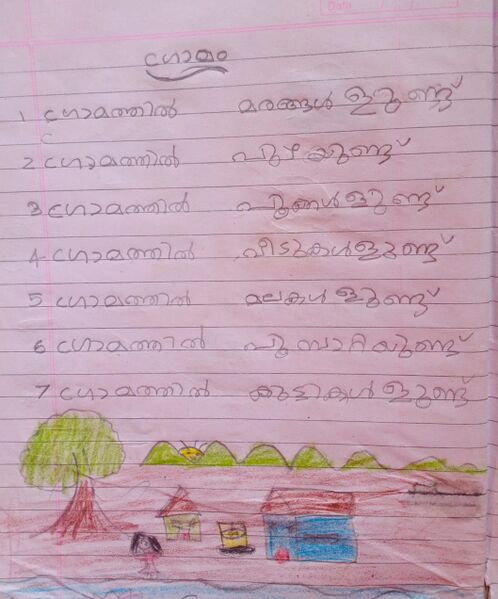 Date / /
ഗ്രാമം
1 ഗ്രാമത്തിൽ മരങ്ങൾളുണ്ട്
2 ഗ്രാമത്തിൽ പുഴയുണ്ട്
3 ഗ്രാമത്തിൽ
4 ഗ്രാമത്തിൽ വീടുകൾളുണ്ട്
5 ഗ്രാമത്തിൽ മലകൾളുണ്ട്
6 ഗ്രാമത്തിൽ
7 ഗ്രാമത്തിൽ കുട്ടികൾളുണ്ട്